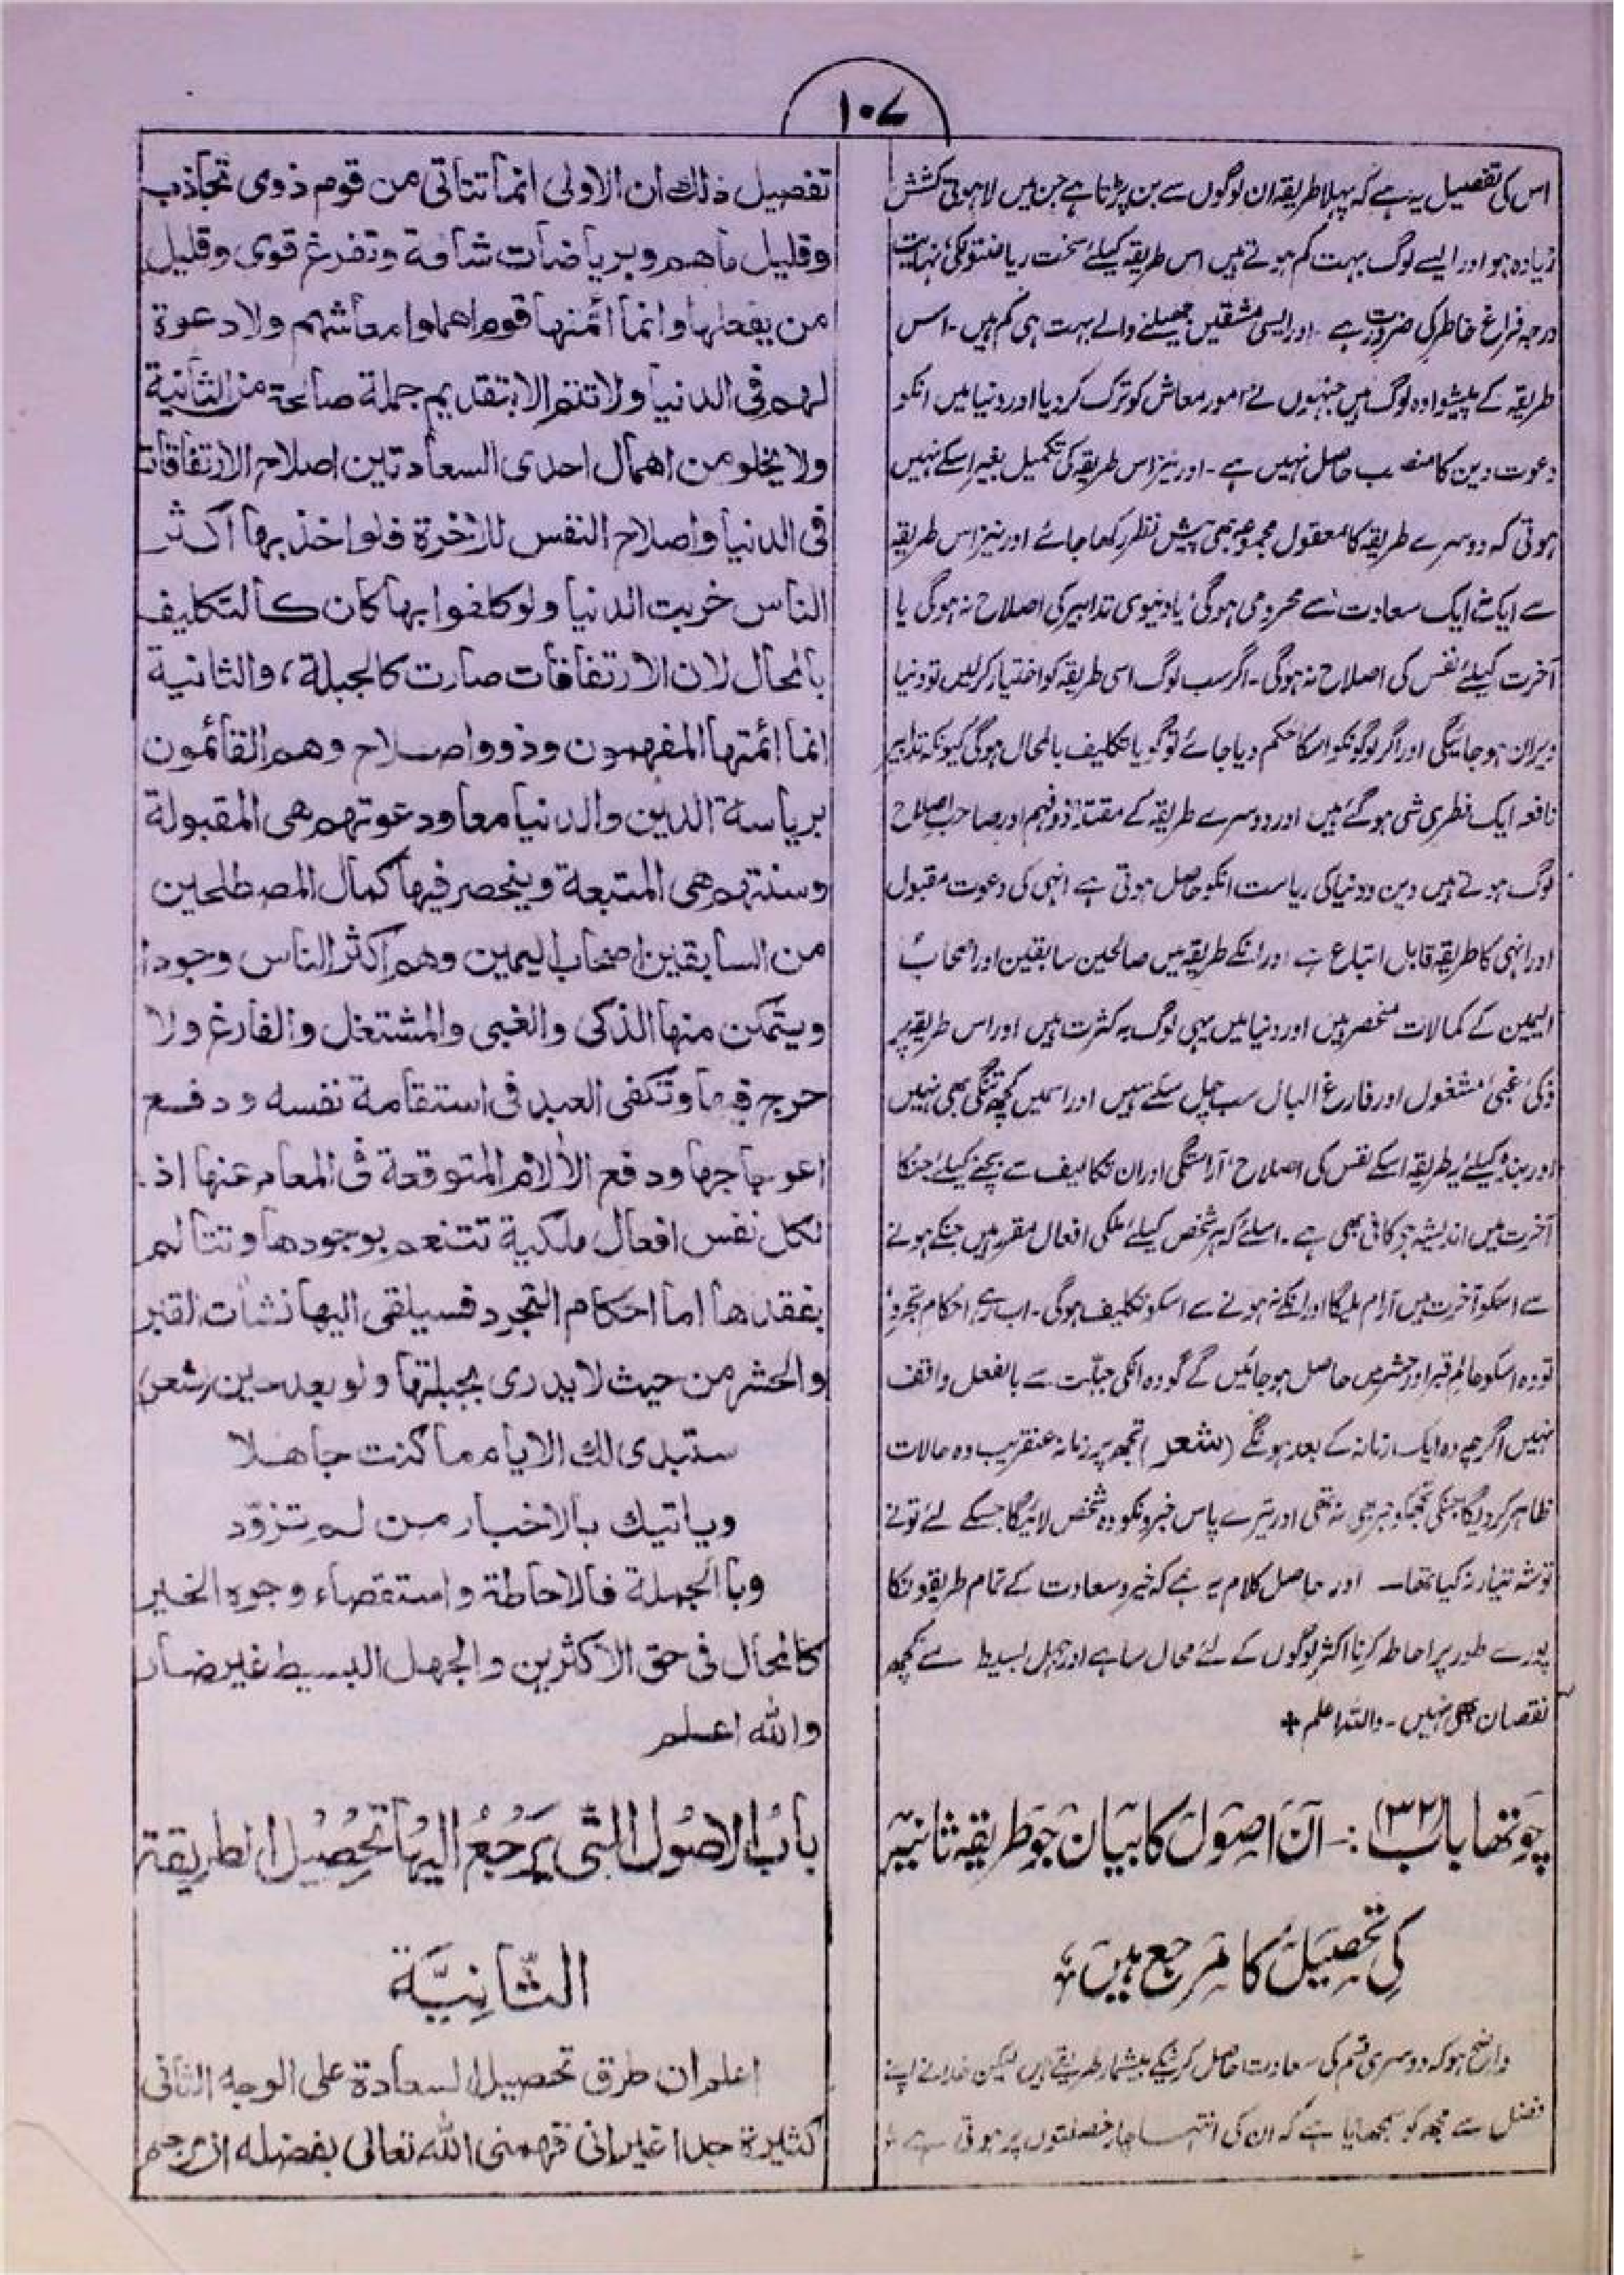 ۱۰۷
اس کی تفصیل یہ ہے کہ پہلا طریقہ ان لوگوں سے بن پڑتا ہے جن میں لاہوتی کشش
زیادہ ہو اور ایسے لوگ بہت کم ہوتے ہیں اس طریقہ کیلئے سخت ریاضتونکی نہایت
درجہ فراغ خاطر کی ضرورت ہے۔ اور ایسی مشقیں جھیلنے والے بہت ہی کم ہیں۔ اس
طریقہ کے پیشوا وہ لوگ ہیں جنہوں نے امور معاش کو ترک کر دیا اور دنیا میں انکو
دعوت دین کا منصب حاصل نہیں ہے۔ اور نیز اس طریقہ کی تکمیل بغیر اسکے نہیں
ہوتی کہ دوسرے طریقہ کا معقول مجموعہ بھی پیش نظر رکھا جائے اور نیز اس طریقہ
سے ایک نہ ایک سعادت سے محرومی ہوگی یا دنیوی تدابیر کی اصلاح نہ ہوگی یا
آخرت کیلئے نفس کی اصلاح نہ ہوگی۔ اگر سب لوگ اسی طریقہ کو اختیار کرلیں تو دنیا
ویران ہو جائیگی اور اگر لوگونکو اسکا حکم دیا جائے تو گویا تکلیف بالمحال ہوگی کیونکہ تدابیر
نافعہ ایک فطری شی ہو گئے ہیں اور دوسرے طریقہ کے مقتدا ذو فہم اور صاحب اصلاح
لوگ ہوتے ہیں دین و دنیا کی ریاست انکو حاصل ہوتی ہے انہی کی دعوت مقبول
اور انہی کا طریقہ قابل اتباع ہے اور انکے طریقہ میں صالحین سابقین اور اصحاب
الیمین کے کمالات منحصر ہیں اور دنیا میں یہی لوگ بہ کثرت ہیں اور اس طریقہ پر
ذکی غبی مشغول اور فارغ البال سب چل سکتے ہیں اور اسمیں کچھ تنگی بھی نہیں
اور بندہ کیلئے یہ طریقہ اسکے نفس کی اصلاح آراستگی اور ان تکالیف سے بچنے کیلئے جنکا
آخرت میں اندیشہ ہو کافی بھی ہے۔ اسلئے کہ ہر شخص کیلئے ملکی افعال مقرر ہیں جنکے ہونے
سے اسکو آخرت میں آرام ملیگا اور انکے نہ ہونے سے اسکو تکلیف ہوگی۔ اب رہے احکام تجرد
تو وہ اسکو عالم قبر اور حشر میں حاصل ہو جائیں گے گو وہ انکی جبلّت سے بالفعل واقف
نہیں اگرچہ وہ ایک زمانہ کے بعد ہونگے (شعر) تجھ پر زمانہ عنقریب وہ حالات
ظاہر کر دیگا جنکی تجھکو خبر ہی نہ تھی اور تیرے پاس خبرونکو وہ شخص لائیگا جسکے لئے تونے
توشہ تیار نہ کیا تھا۔ اور حاصل کلام یہ ہے کہ خیر و سعادت کے تمام طریقونکا
پورے طور پر احاطہ کرنا اکثر لوگوں کے لئے محال سا ہے اور جہل بسیط سے کچھ
نقصان بھی نہیں۔ واللہ اعلم +
چوتھا باب (۳۲) :- ان اصول کا بیان جو طریقہ ثانیہ
کی تحصیل کا مرجع ہیں
واضح ہو کہ دوسری قسم کی سعادت حاصل کرنیکے بیشمار طریقے ہیں لیکن خدا نے اپنے
فضل سے مجھ کو سمجھایا ہے کہ ان کی انتہا چار خصلتوں پر ہوتی ہے
تفصیل ذلك ان الاولى انما تتاتی من قوم ذوی تجاذب
وقلیل ماهم وبریاضات شاقة وتفرغ قوی وقلیل
من یفعلها وانما ائمتها قوم اهملوا معاشهم ولا دعوة
لهم فی الدنیا ولا تتم الا بتقدیم جملة صالحة من الثانیة
ولا یخلو من اهمال احدی السعادتین اصلاح الارتفاقات
فی الدنیا واصلاح النفس للاخرة فلو اخذ بها اکثر
الناس خربت الدنیا ولو کلفوا بها کان کالتکلیف
بالمحال لان الارتفاقات صارت کالجبلة، والثانیة
انما ائمتها المفهمون وذوو اصلاح وهم القائمون
بریاسة الدین والدنیا معا ودعوتهم هی المقبولة
وسنتهم هی المتبعة وینحصر فیها کمال المصطلحین
من السابقین اصحاب الیمین وهم اکثر الناس وجودا
ویتمکن منها الذکی والغبی والمشتغل والفارغ ولا
حرج فیها وتکفی العبد فی استقامة نفسه ودفع
اعوجاجها ودفع الآلام المتوقعة فی المعاد عنها اذ
لکل نفس افعال ملکیة تتنعم بوجودها وتتالم
بفقدها اما احکام التجرد فسیلقی الیها نشات القبر
والحشر من حیث لا یدری بجبلتها ولو بعد حین (شعر)
ستبدی لك الایام ما کنت جاهلا
ویاتیك بالاخبار من لم تزوّد
وبالجملة فالاحاطة واستقصاء وجوه الخیر
کالمحال فی حق الاکثرین والجهل البسیط غیر ضار
والله اعلم
بابُ الاصُول التی یَرجعُ الیها تحصیْل الطریقة
الثّانِیَّة
اعلم ان طرق تحصیل السعادة علی الوجه الثانی
کثیرة جدا غیر انی فهمنی الله تعالی بفضله ان مرجعها